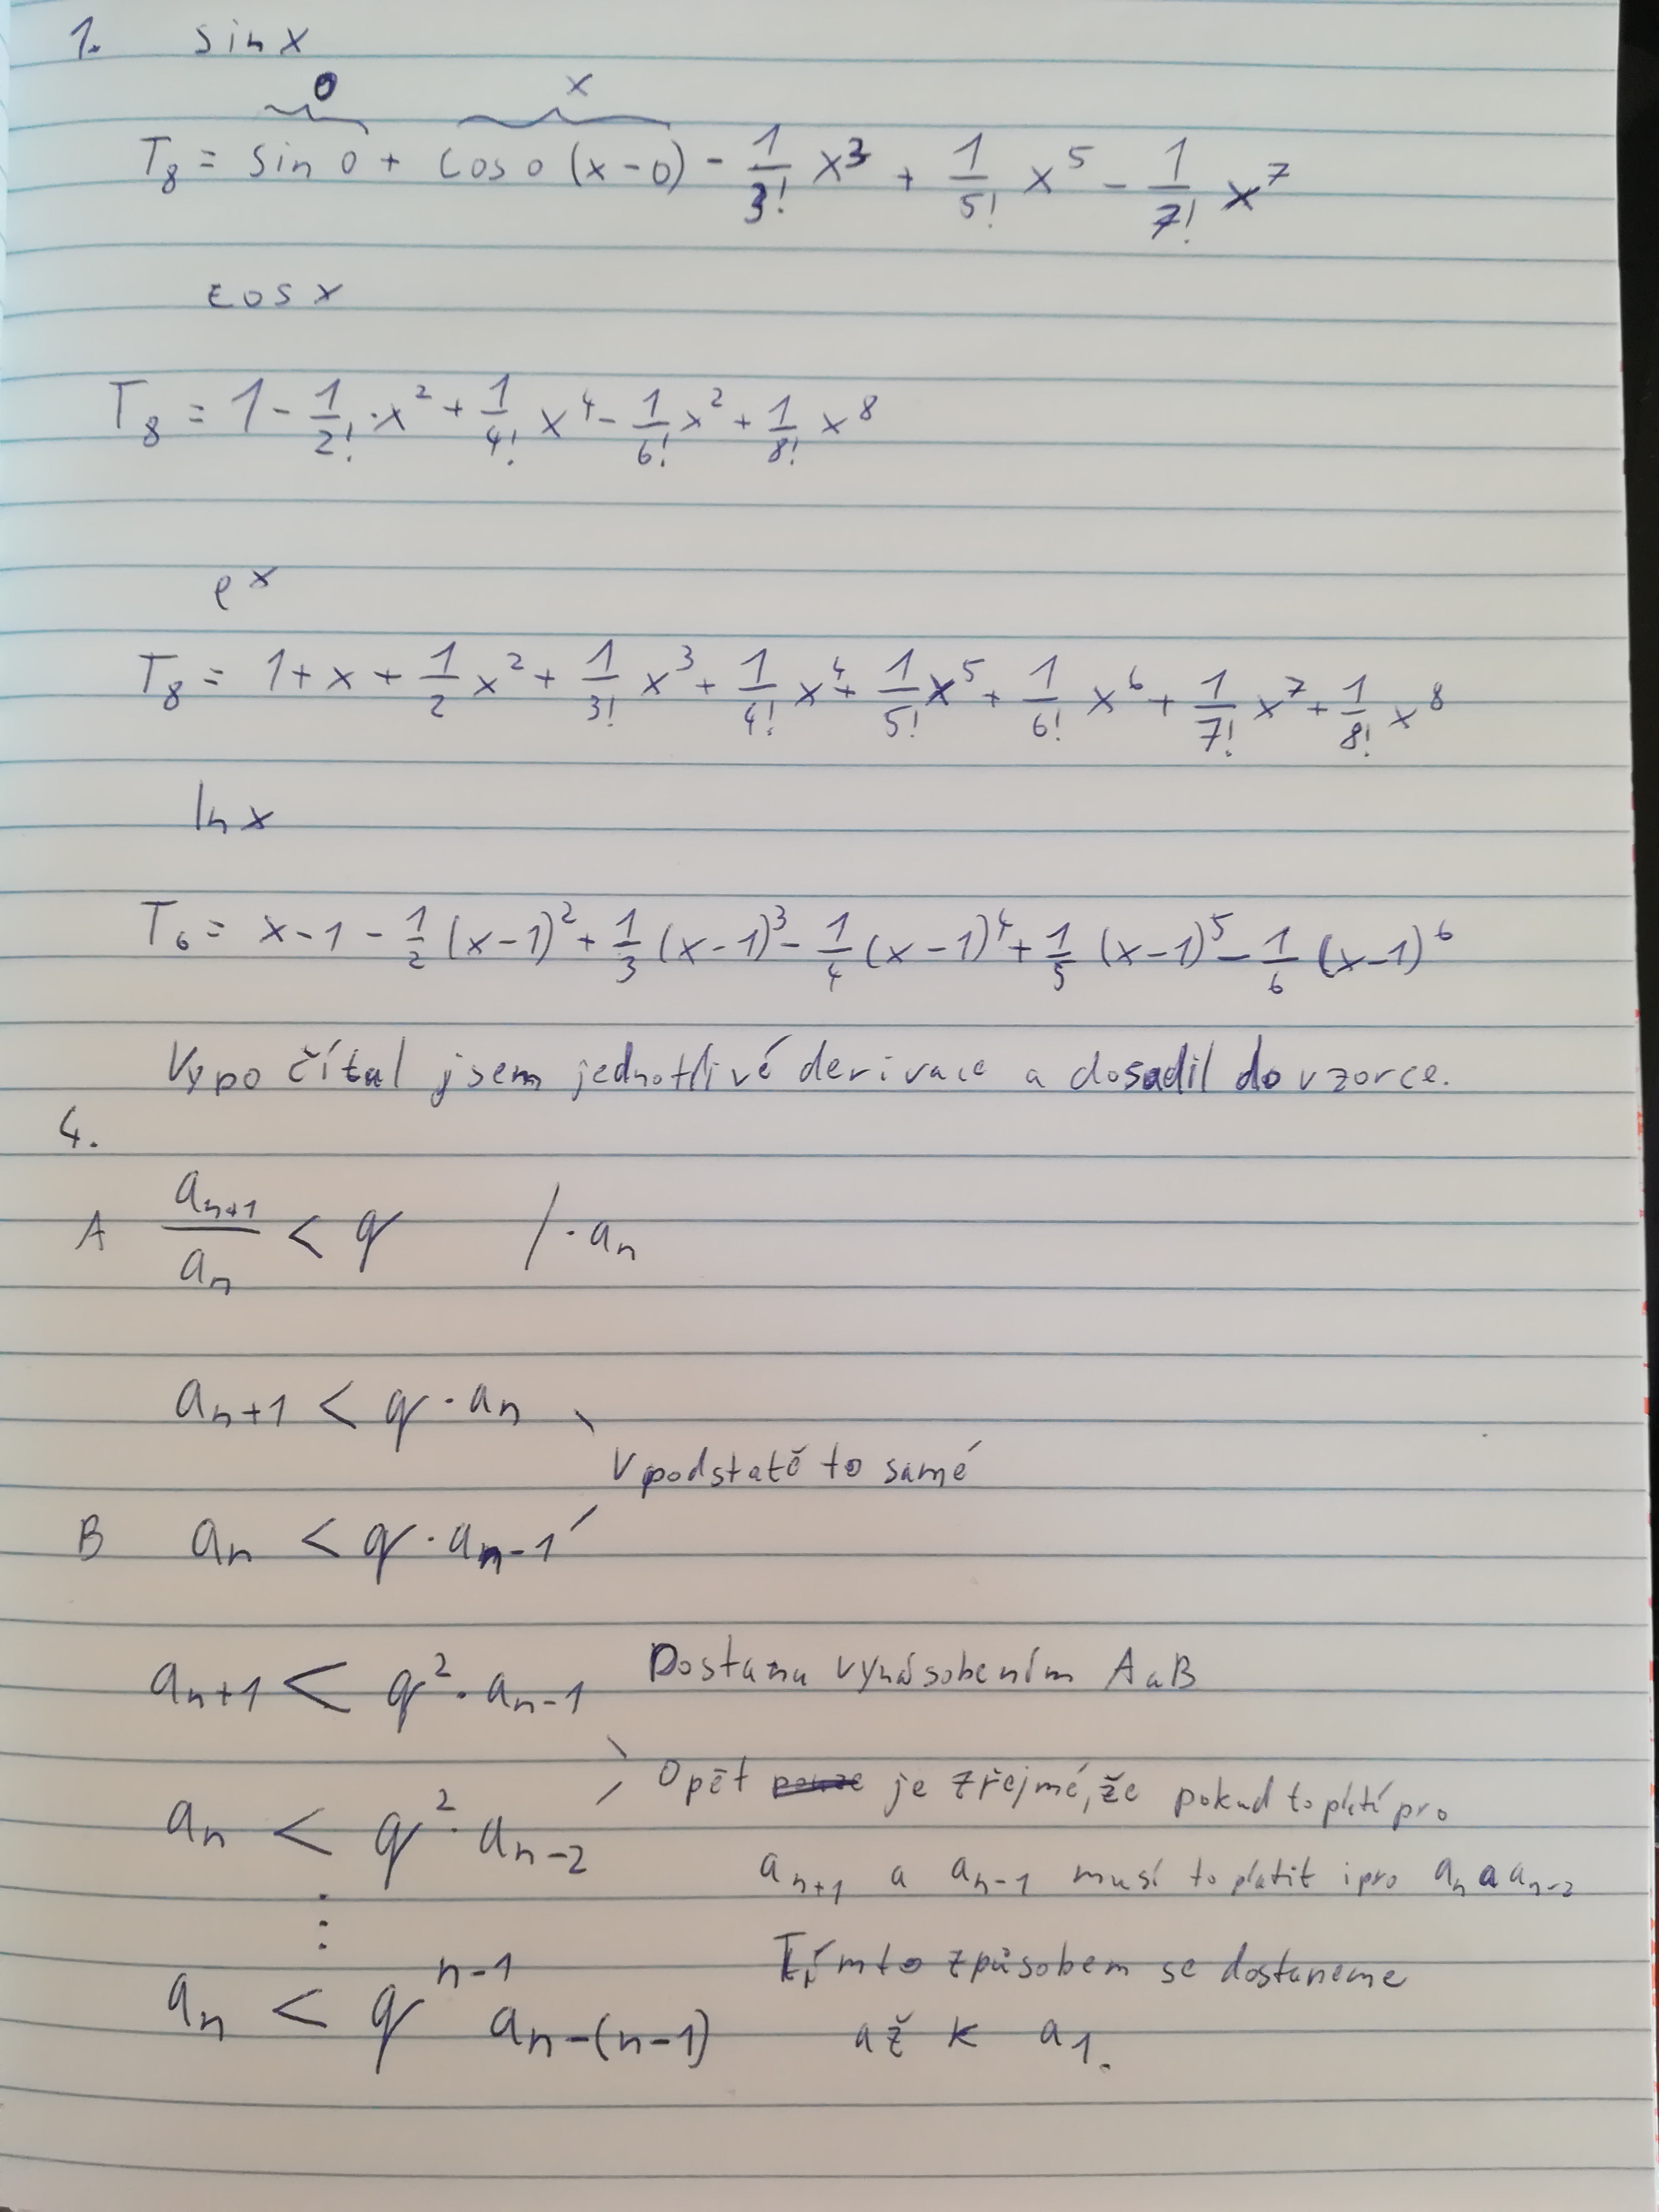 1. sin x
0 x
T₈ = sin 0 + cos 0 (x-0) - 1/3! x³ + 1/5! x⁵ - 1/7! x⁷
cos x
T₈ = 1 - 1/2! · x² + 1/4! x⁴ - 1/6! x² + 1/8! x⁸
eˣ
T₈ = 1 + x + 1/2 x² + 1/3! x³ + 1/4! x⁴ + 1/5! x⁵ + 1/6! x⁶ + 1/7! x⁷ + 1/8! x⁸
ln x
T₆ = x-1 - 1/2 (x-1)² + 1/3 (x-1)³ - 1/4 (x-1)⁴ + 1/5 (x-1)⁵ - 1/6 (x-1)⁶
Vypočítal jsem jednotlivé derivace a dosadil do vzorce.
4.
A aₙ₊₁/aₙ < q /·aₙ
aₙ₊₁ < q · aₙ
V podstatě to samé
B aₙ < q · aₙ₋₁
aₙ₊₁ < q² · aₙ₋₁ Dostanu vynásobením A a B
Opět je zřejmé, že pokud to platí pro
aₙ < q² · aₙ₋₂
aₙ₊₁ a aₙ₋₁ musí to platit i pro aₙ a aₙ₋₂
⋮
Tímto způsobem se dostaneme
aₙ < qⁿ⁻¹ aₙ₋₍ₙ₋₁₎ až k a₁.